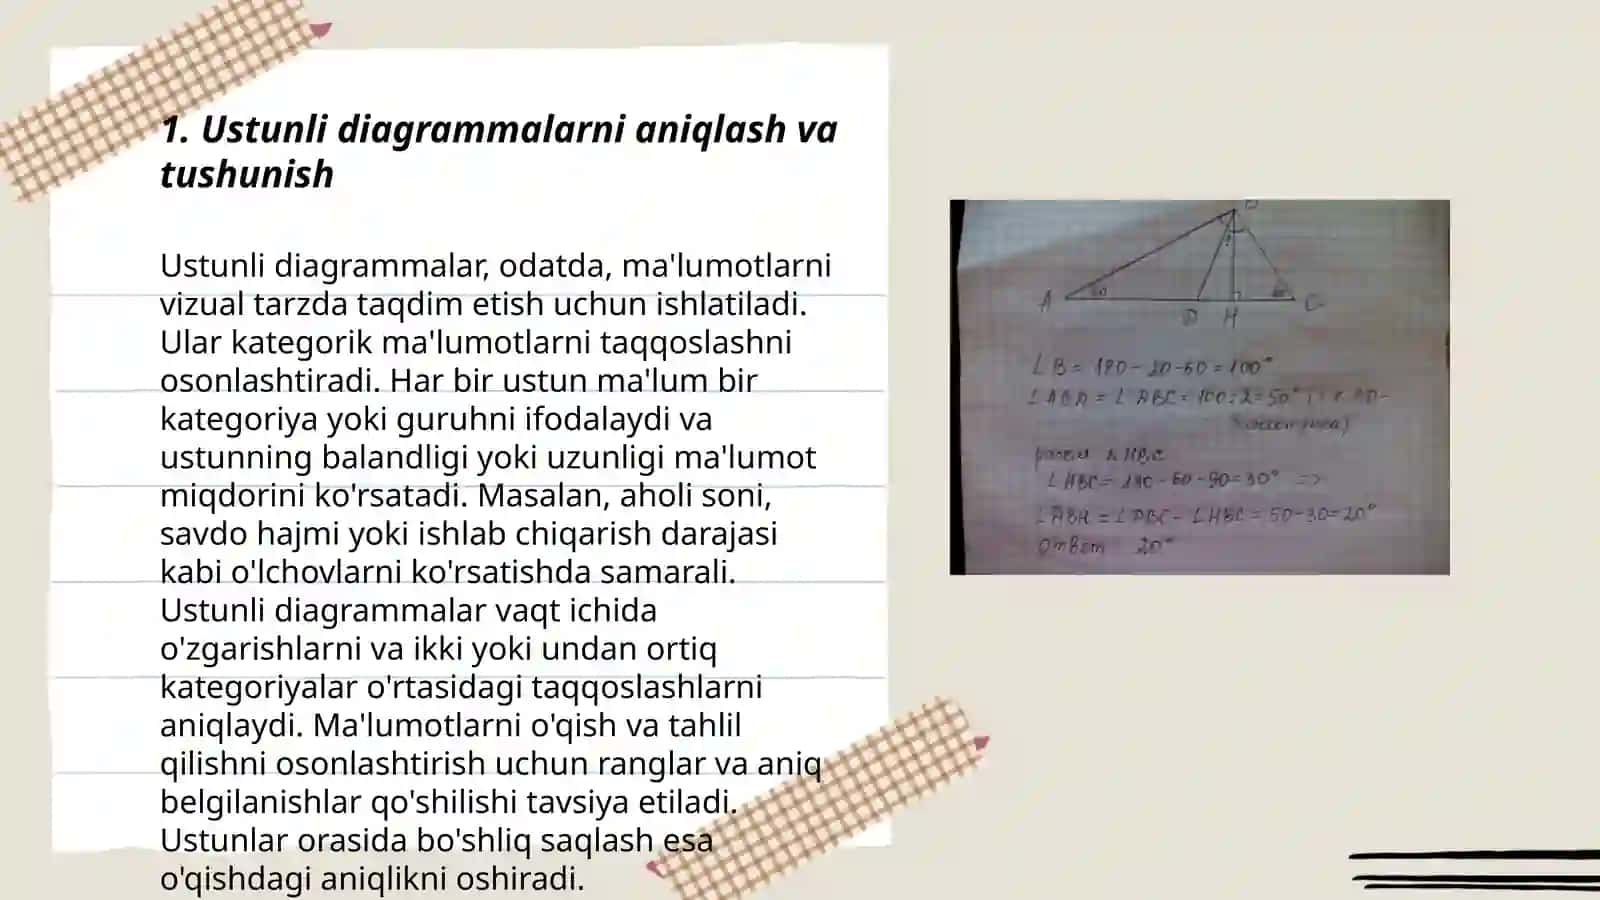 1. Ustunli diagrammalarni aniqlash va
tushunish
Ustunli diagrammalar, odatda, ma'lumotlarni
vizual tarzda taqdim etish uchun ishlatiladi.
Ular kategorik ma'lumotlarni taqqoslashni
osonlashtiradi. Har bir ustun ma'lum bir
kategoriya yoki guruhni ifodalaydi va
ustunning balandligi yoki uzunligi ma'lumot
miqdorini ko'rsatadi. Masalan, aholi soni,
savdo hajmi yoki ishlab chiqarish darajasi
kabi o'lchovlarni ko'rsatishda samarali.
Ustunli diagrammalar vaqt ichida
o'zgarishlarni va ikki yoki undan ortiq
kategoriyalar o'rtasidagi taqqoslashlarni
aniqlaydi. Ma'lumotlarni o'qish va tahlil
qilishni osonlashtirish uchun ranglar va aniq
belgilanishlar qo'shilishi tavsiya etiladi.
Ustunlar orasida bo'shliq saqlash esa
o'qishdagi aniqlikni oshiradi.
A D H C
∠B = 180 - 20 - 60 = 100°
= 100 : 2 = 50°
∠HBC = 180 - 60 - 90 = 30° =>
∠DBH = ∠DBC - ∠HBC = 50 - 30 = 20°
Ответ 20°